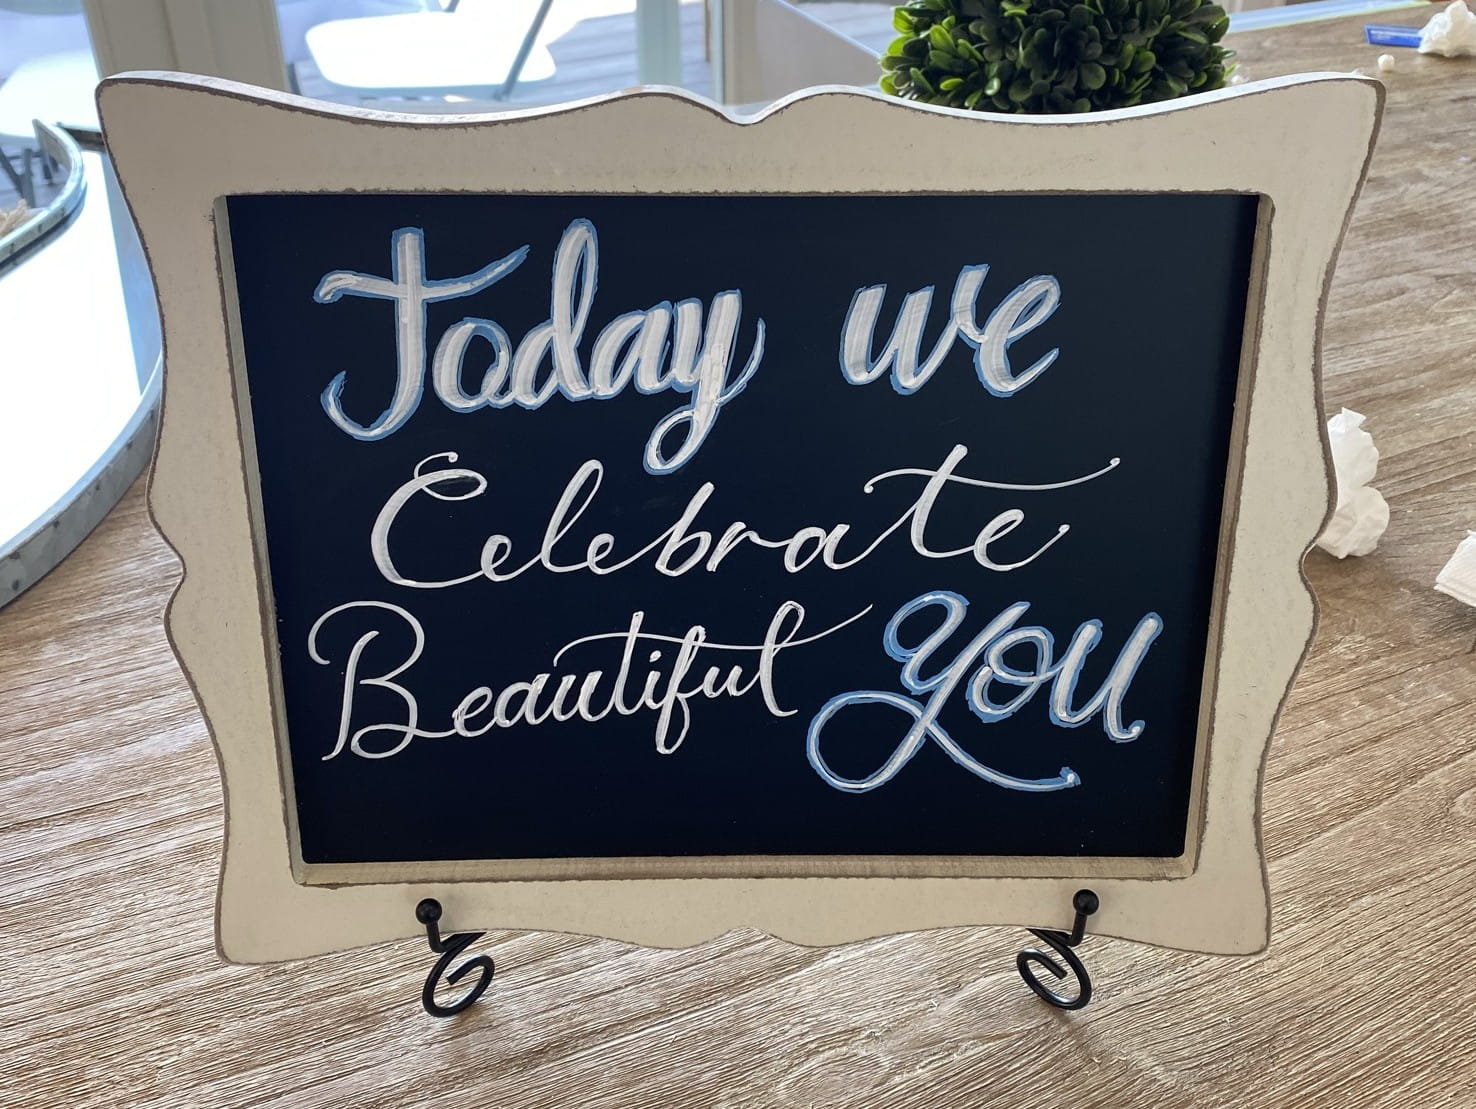 Today we
Celebrate
Beautiful YOU